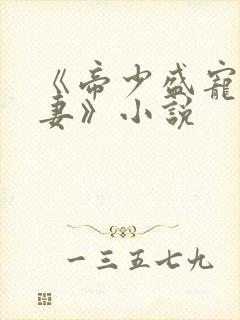 《帝少盛宠
妻》小说
一三五七九